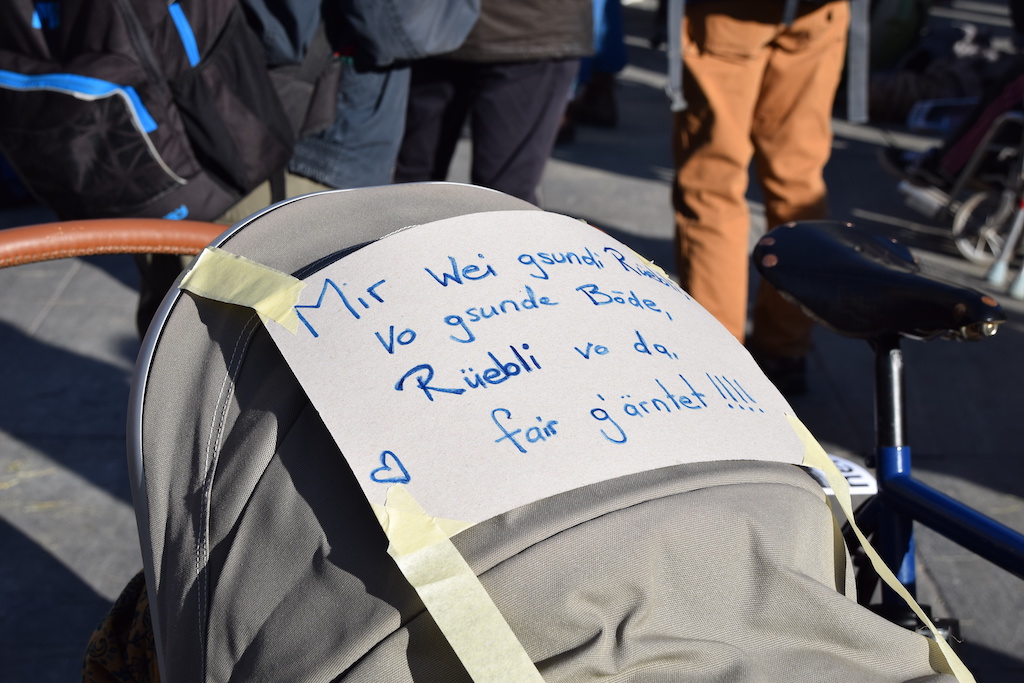 Mir wei gsundi Rüebli
vo gsunde Böde,
Rüebli vo da.
fair g'ärntet !!!!